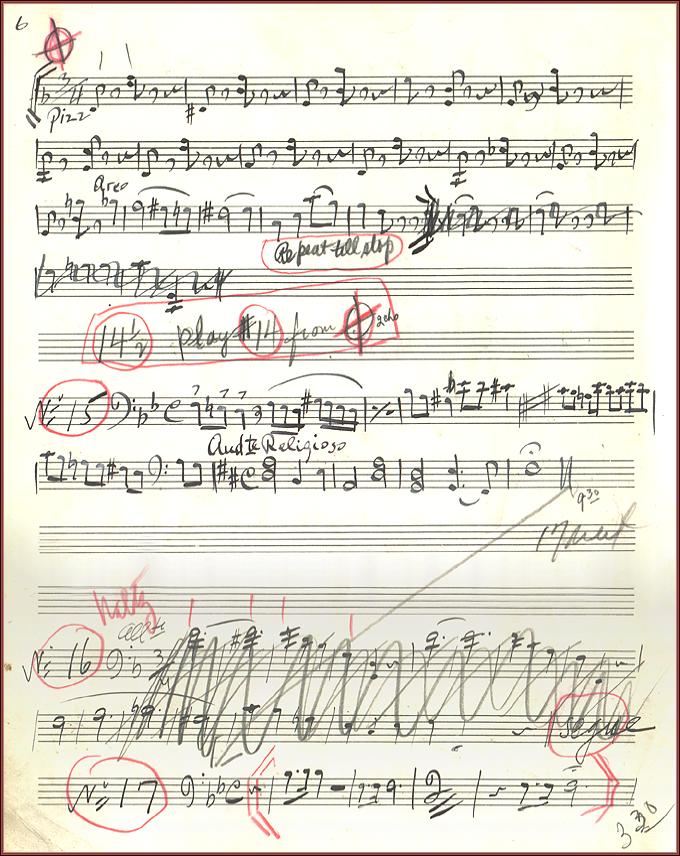 6
Pizz
Arco
Repeat till stop
14 1/2 play #14 from 2cho
No 15
Andte Religioso
9 30
17 next
Waltz
Allo
No 16
segue
No 17
3 30